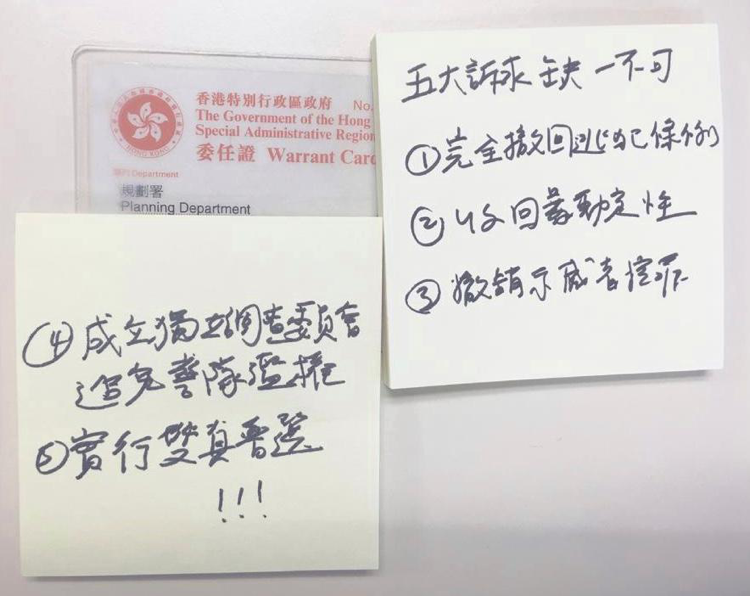 香港特別行政區政府 No.
The Government of the Hong
Special Administrative Region
委任證 Warrant Card
HONG KONG
部門 Department
規劃署
Planning Department
五大訴求 缺一不可
①完全撤回逃犯條例
②收回暴動定性
③撤銷示威者控罪
④成立獨立調查委員會
追究警隊濫權
⑤實行雙真普選
!!!